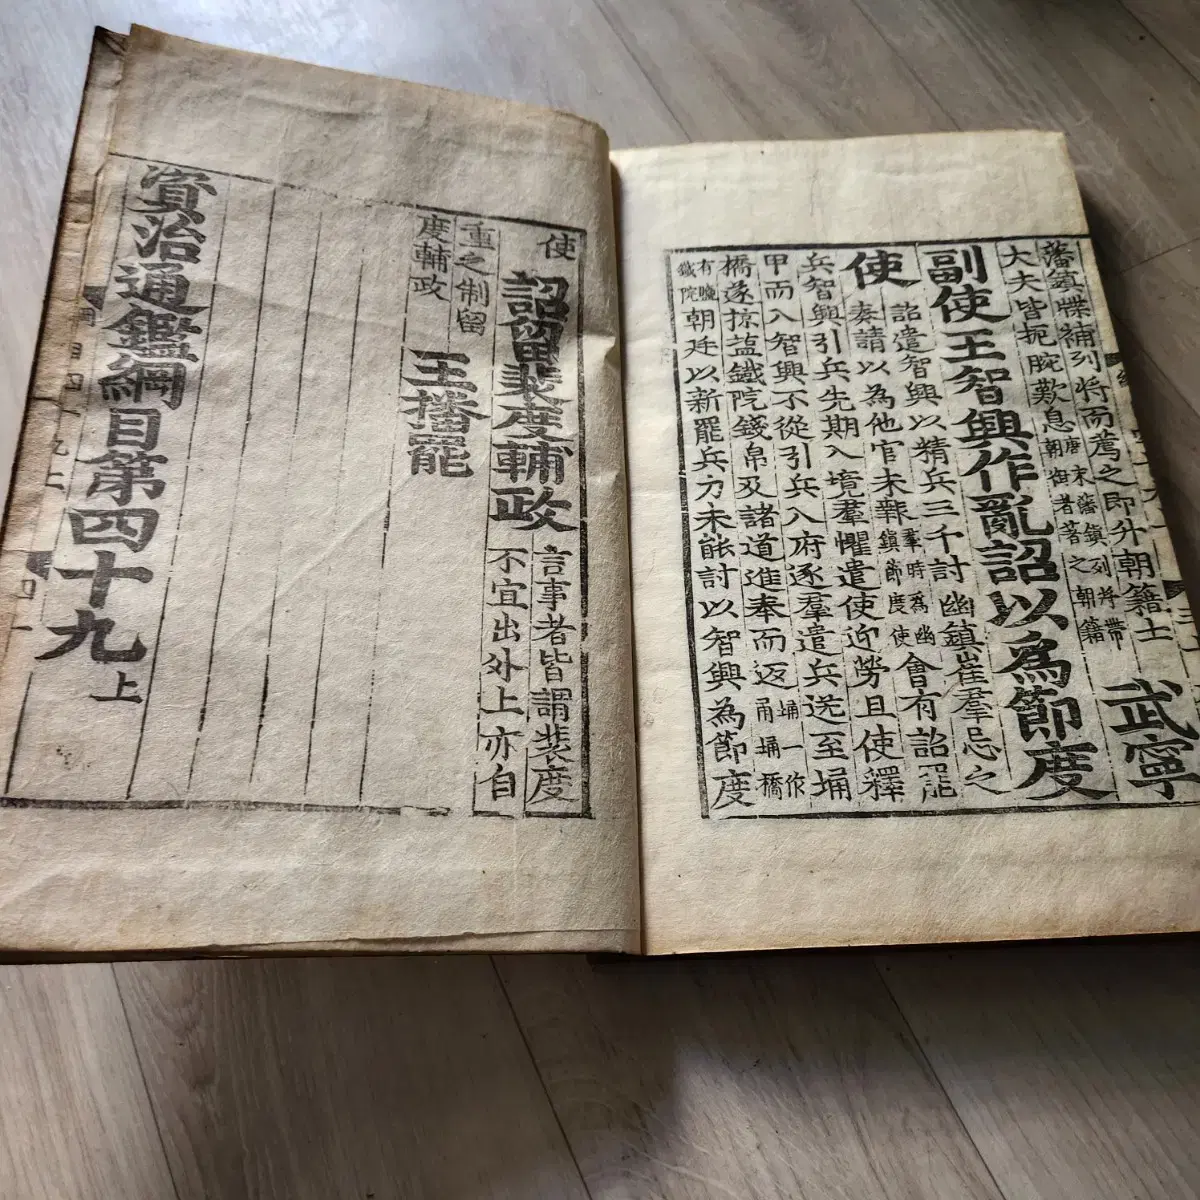 藩鎮牒補列將而薦之即升朝籍士
大夫皆扼腕歎息唐末藩鎮列將帶朝御者著之朝籍
武寧
副使王智興作亂詔以為節度
使詔遣智興以精兵三千討幽鎮崔羣忌之
奏請以為他官未報羣時為幽鎮節度使會有詔罷
兵智興引兵先期入境羣懼遣使迎勞且使釋
甲而入智興不從引兵入府逐羣遣兵送至埇
橋遂掠鹽鐵院錢帛及諸道進奉而返埇一作甬埇橋
有鹽鐵院朝廷以新罷兵力未能討以智興為節度
使
詔留裴度輔政
言事者皆謂裴度
不宜出外上亦自
重之制留
度輔政
王播罷
資治通鑑綱目第四十九上